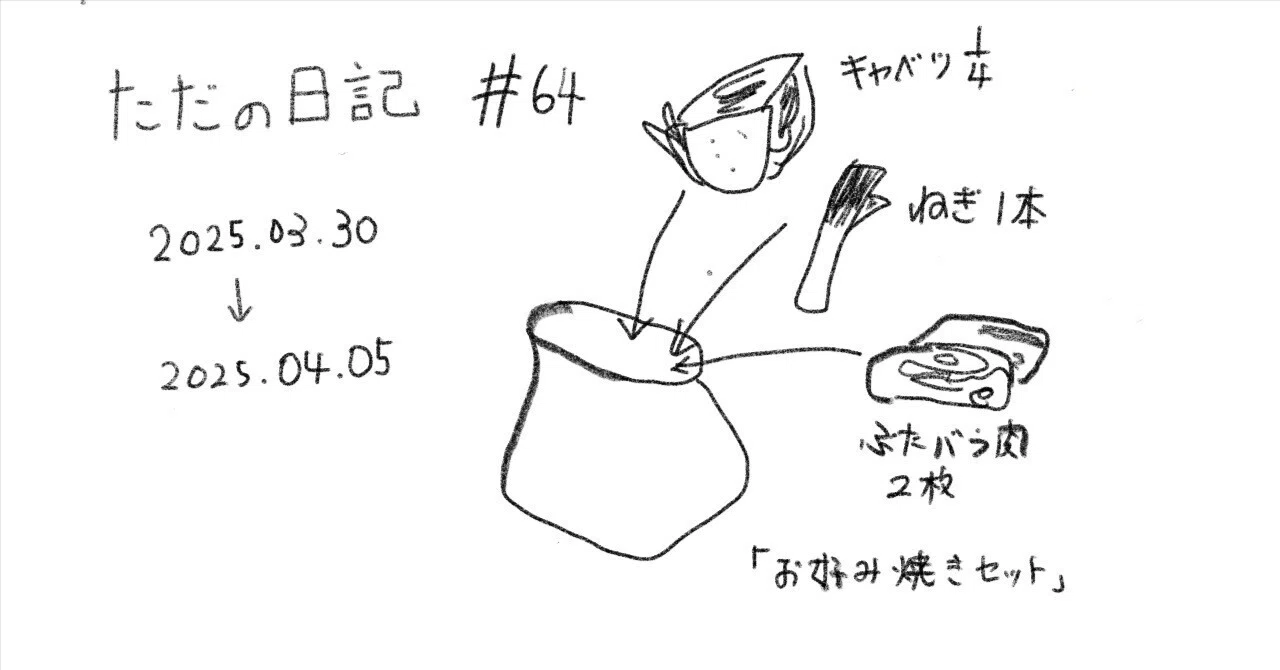 ただの日記 #64
2025.03.30
↓
2025.04.05
キャベツ 1/4
ねぎ1本
ぶたバラ肉
2枚
「お好み焼きセット」